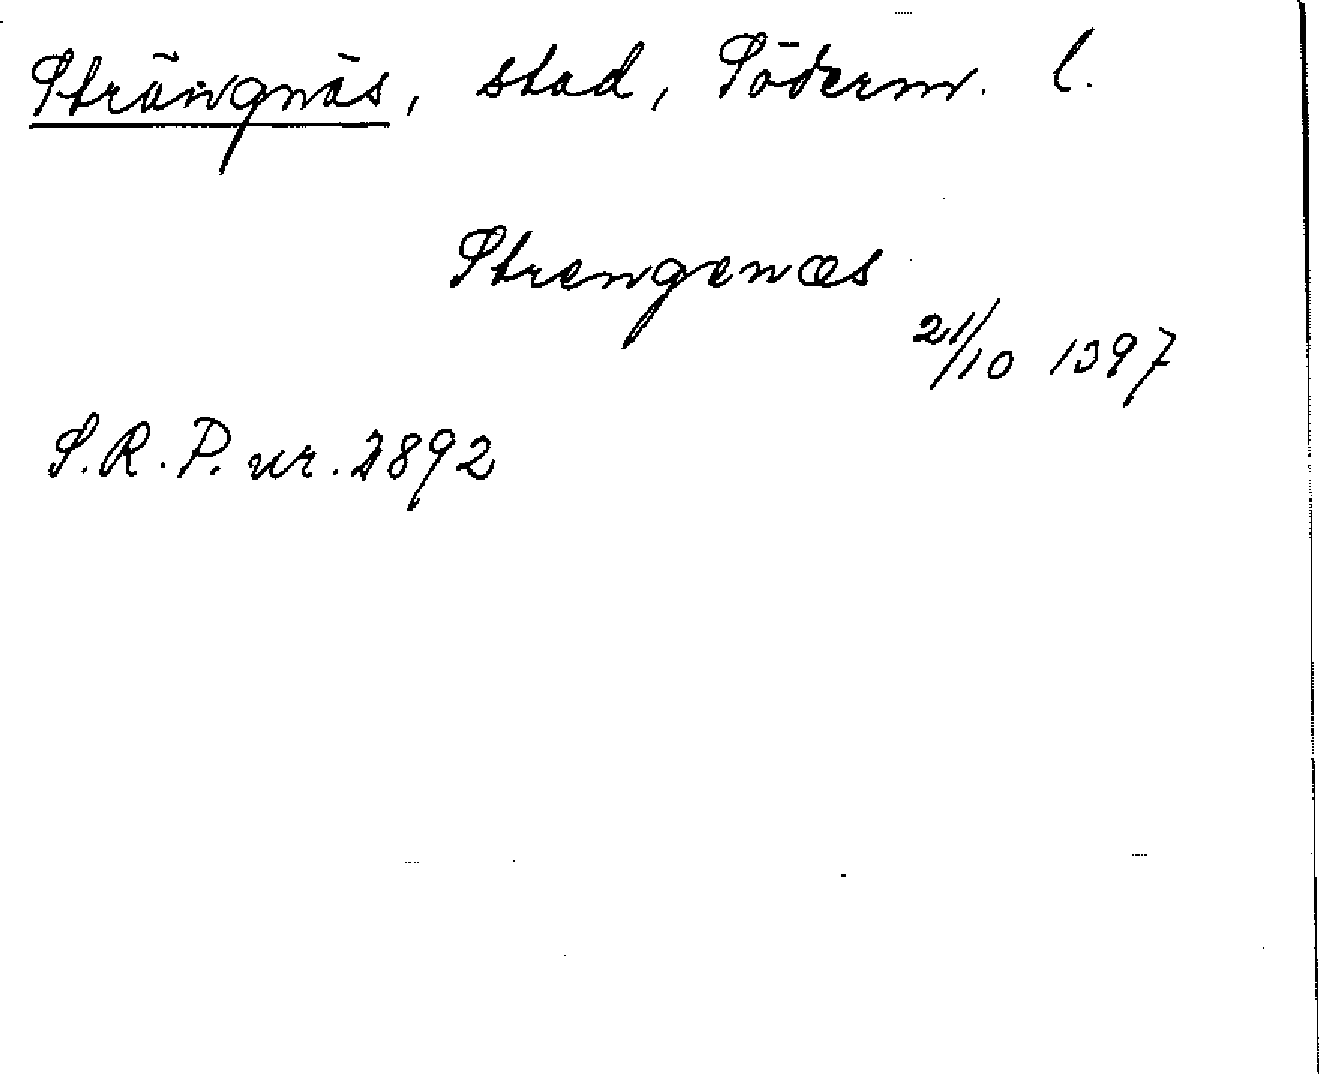 Strängnäs, stad, Söderm. l.
Strengenæs
21/10 1397
S.R.P. nr. 2892